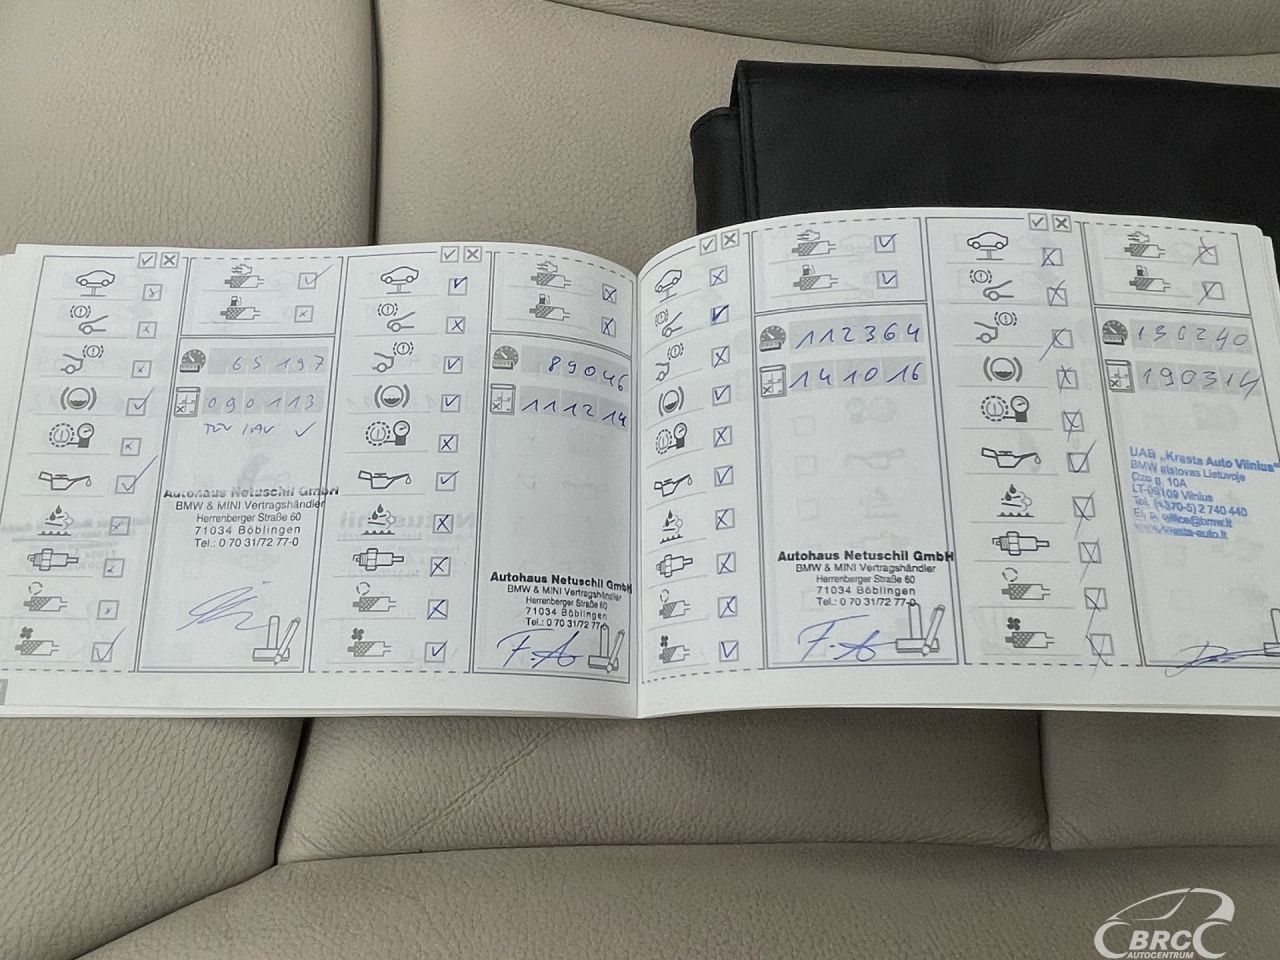 65197
090113
TÜV / AU ✓
Autohaus Netuschil GmbH
BMW & MINI Vertragshändler
Herrenberger Straße 60
71034 Böblingen
Tel.: 0 70 31/72 77-0
89046
111214
Autohaus Netuschil GmbH
BMW & MINI Vertragshändler
Herrenberger Straße 60
71034 Böblingen
Tel.: 0 70 31/72 77-0
F.A
112364
141016
Autohaus Netuschil GmbH
BMW & MINI Vertragshändler
Herrenberger Straße 60
71034 Böblingen
Tel.: 0 70 31/72 77-0
F.A
130240
190314
UAB „Krasta Auto Vilnius“
BMW atstovas Lietuvoje
Ozo g. 10A
LT-09109 Vilnius
Tel. (+370-5) 2 740 440
El. p. office@bmw.lt
www.krasta-auto.lt
BRC
AUTOCENTRUM